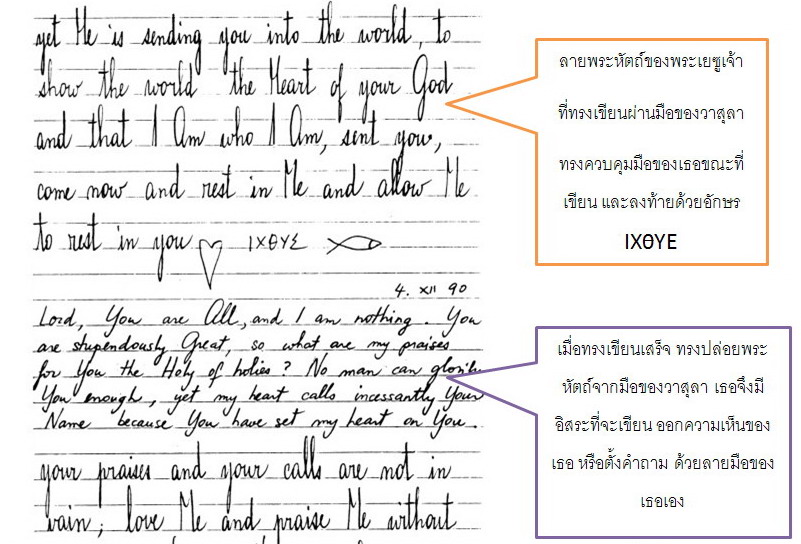 yet Me is sending you into the world, to
show the world the Heart of your God
and that I Am who I Am, sent you,
come now and rest in Me and allow Me
to rest in you ΙΧΘΥΣ
4. XII 90
Lord, You are All, and I am nothing. You
are stupendously Great, so what are my praises
for You the Holy of holies? No man can glorify
You enough, yet my heart calls incessantly Your
Name because You have set my heart on You.
your praises and your calls are not in
vain; love Me and praise Me without
ลายพระหัตถ์ของพระเยซูเจ้า
ที่ทรงเขียนผ่านมือของวาสุลา
ทรงควบคุมมือของเธอขณะที่
เขียน และลงท้ายด้วยอักษร
ΙΧΘΥΕ
เมื่อทรงเขียนเสร็จ ทรงปล่อยพระ
หัตถ์จากมือของวาสุลา เธอจึงมี
อิสระที่จะเขียน ออกความเห็นของ
เธอ หรือตั้งคำถาม ด้วยลายมือของ
เธอเอง